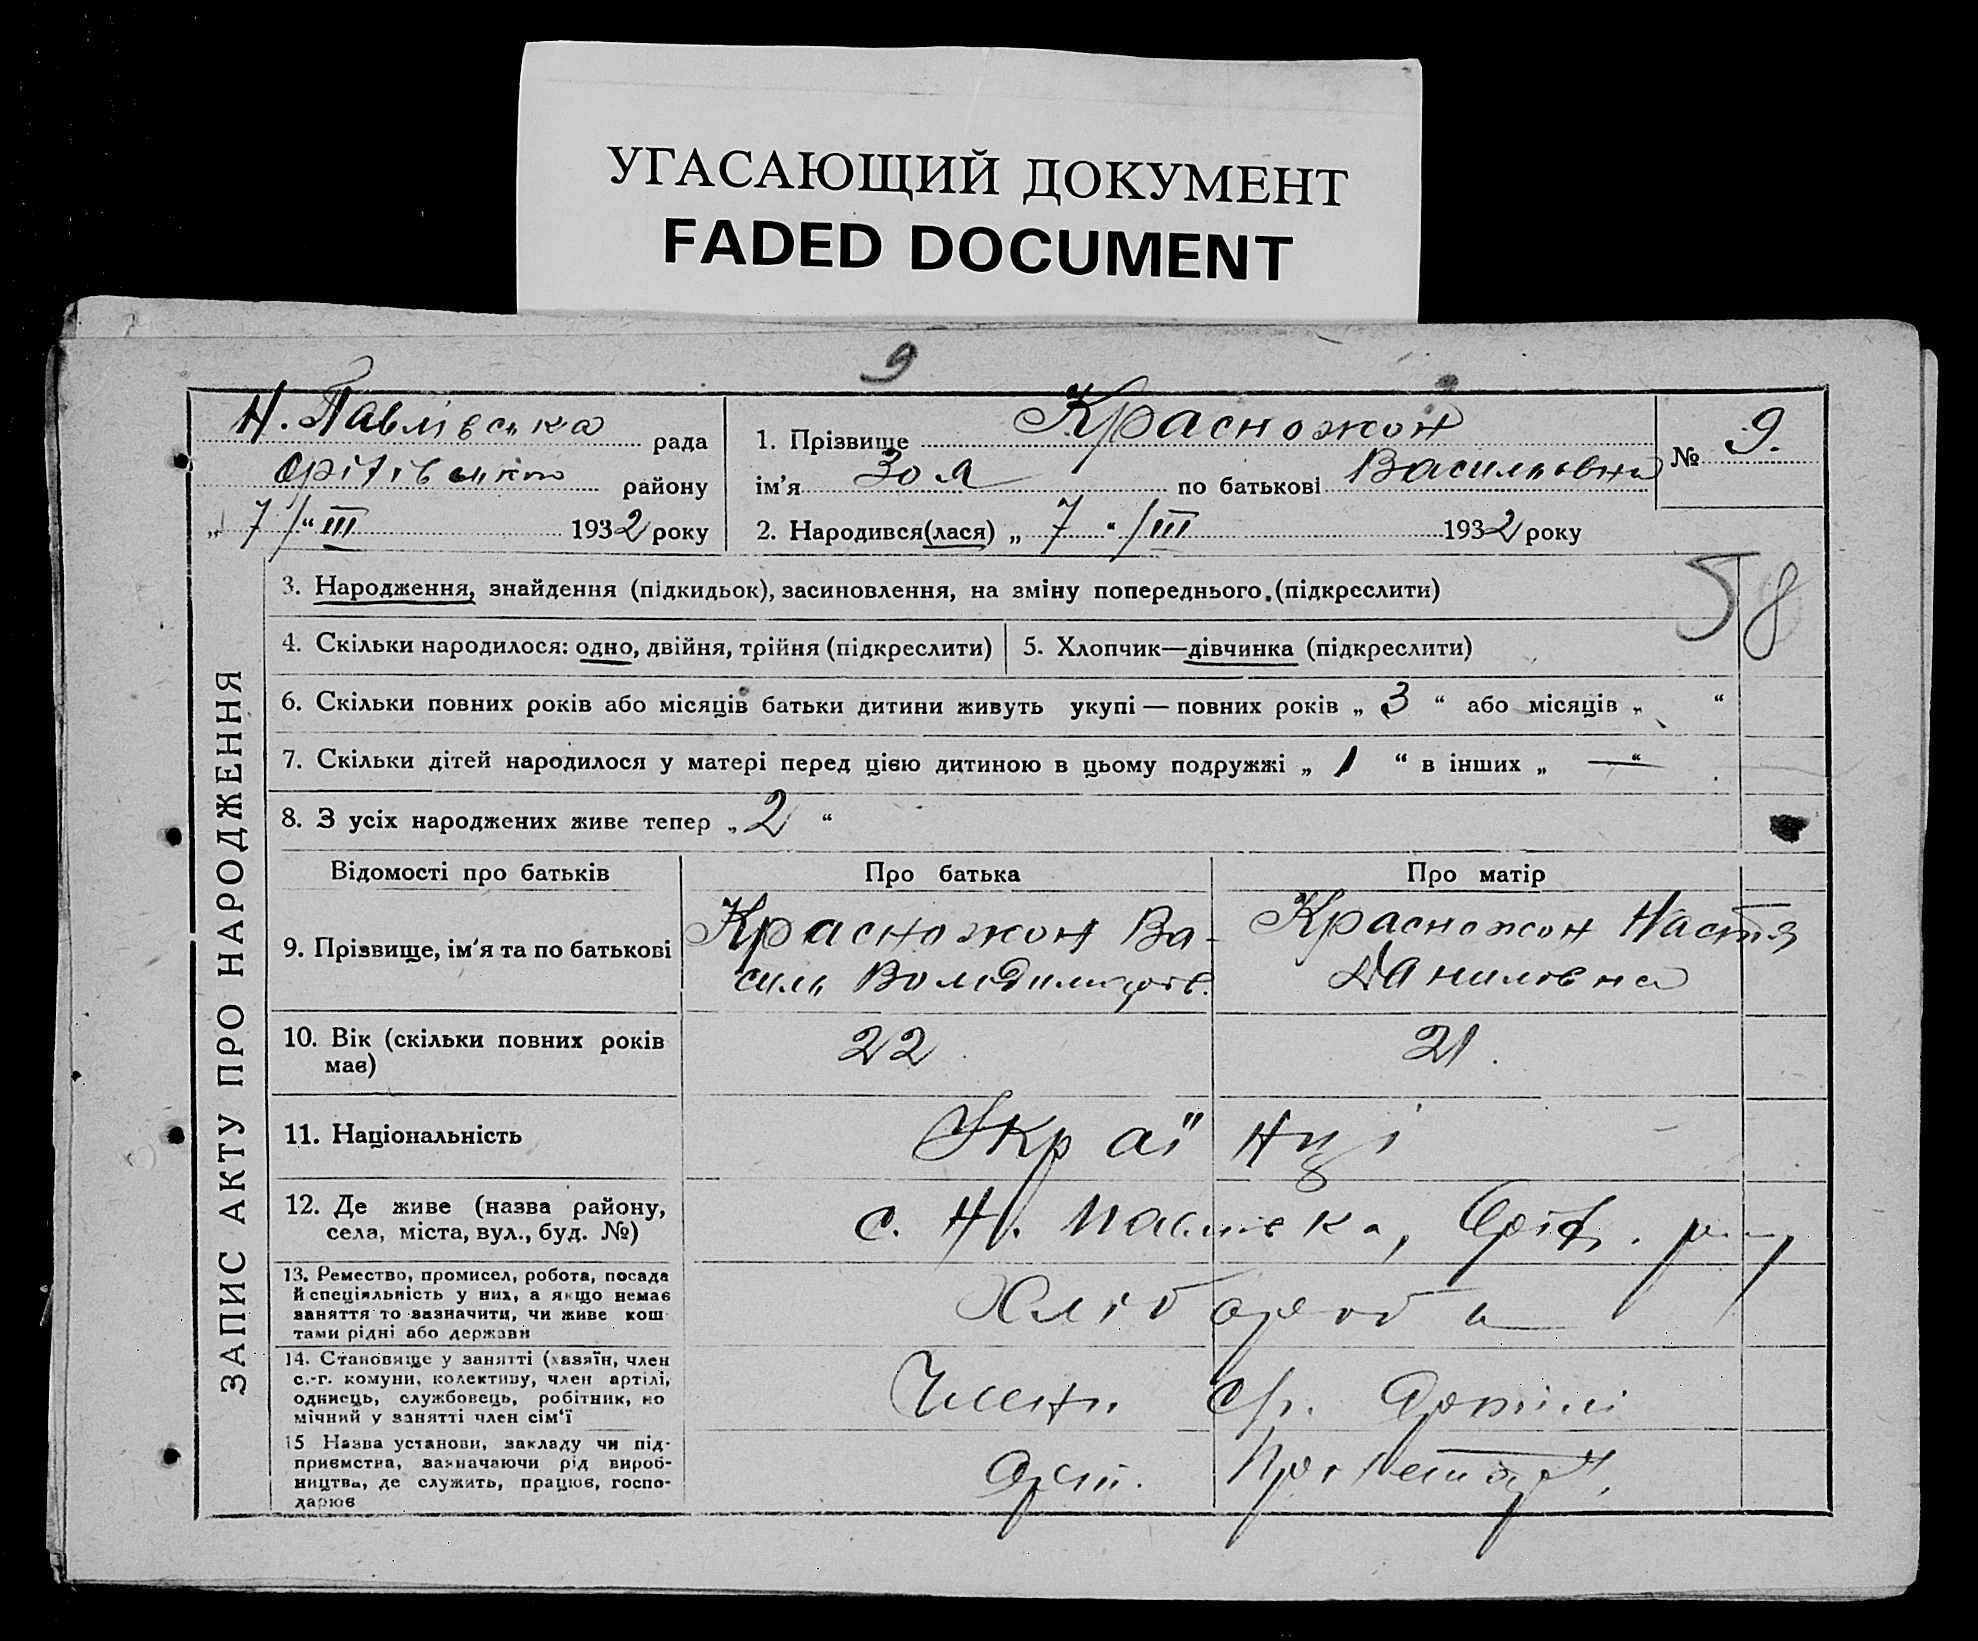 УГАСАЮЩИЙ ДОКУМЕНТ
FADED DOCUMENT
9
Н. Павлівська рада
району
„ 7 / “ III 1932 року
1. Прізвище Красножон
ім’я Зоя по батькові Васильовна
2. Народився(лася) „ 7 “ / III 1932 року
№ 9.
58
ЗАПИС АКТУ ПРО НАРОДЖЕННЯ
3. Народження, знайдення (підкидьок), засиновлення, на зміну попереднього. (підкреслити)
4. Скільки народилося: одно, двійня, трійня (підкреслити)
5. Хлопчик—дівчинка (підкреслити)
6. Скільки повних років або місяців батьки дитини живуть укупі — повних років „ 3 “ або місяців „ “
7. Скільки дітей народилося у матері перед цією дитиною в цьому подружжі „ 1 “ в інших „ — “
8. З усіх народжених живе тепер „ 2 “
Відомості про батьків
Про батька
Про матір
9. Прізвище, ім’я та по батькові
Красножон Ва-
силь Володимиров.
Красножон Настя
Даниловна
10. Вік (скільки повних років
має)
22
21.
11. Національність
Українці
12. Де живе (назва району,
села, міста, вул., буд. №)
с. Н. Павлівка,
13. Ремество, промисел, робота, посада
й спеціяльність у них, а якщо немає
заняття то зазначити, чи живе кош
тами рідні або держави
Хліборобы
14. Становище у занятті (хазяїн, член
с.-г. комуни, колективу, член артілі,
одинець, службовець, робітник, по
мічний у занятті член сім’ї
Члени с/г. Артілі
15 Назва установи, закладу чи під-
приємства, зазначаючи рід вироб-
ництва, де служить, працює, госпо-
дарює
Арт.